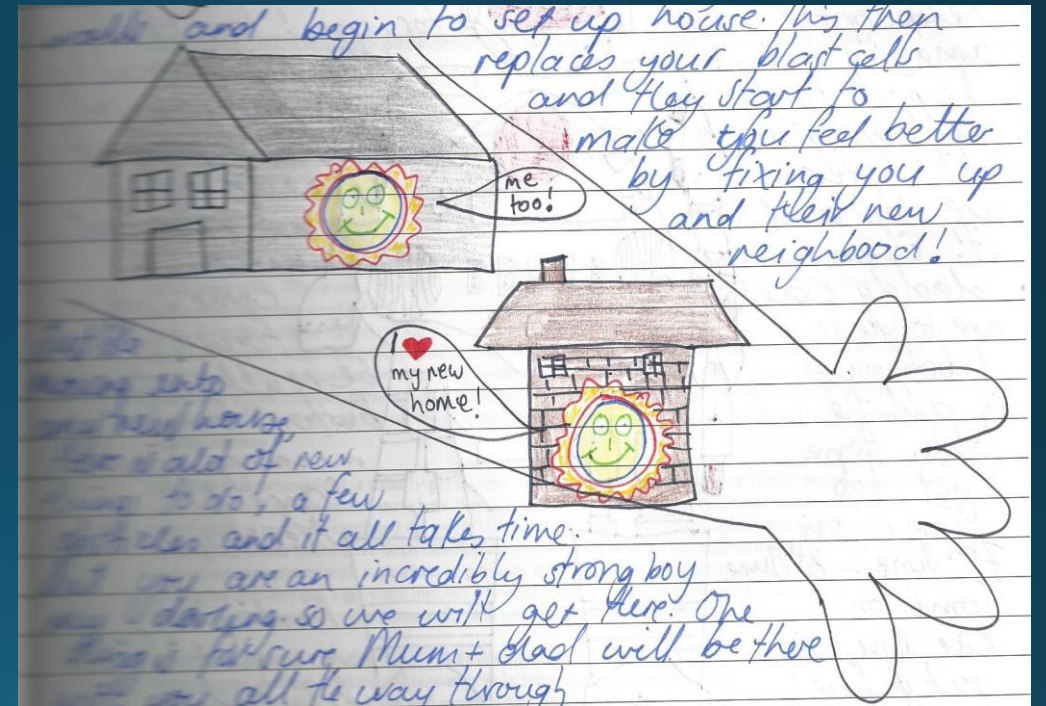 walls and begin to set up house. This then
replaces your blast cells
and they start to
make you feel better
by fixing you up
and their new
neighbood!
me
too!
I ❤
my new
home!
Just like
moving into
house,
of new
things to do, a few
and it all takes time.
but you are an incredibly strong boy
my darling so we will get there. One
thing is for sure, Mum + dad will be there
with you all the way through